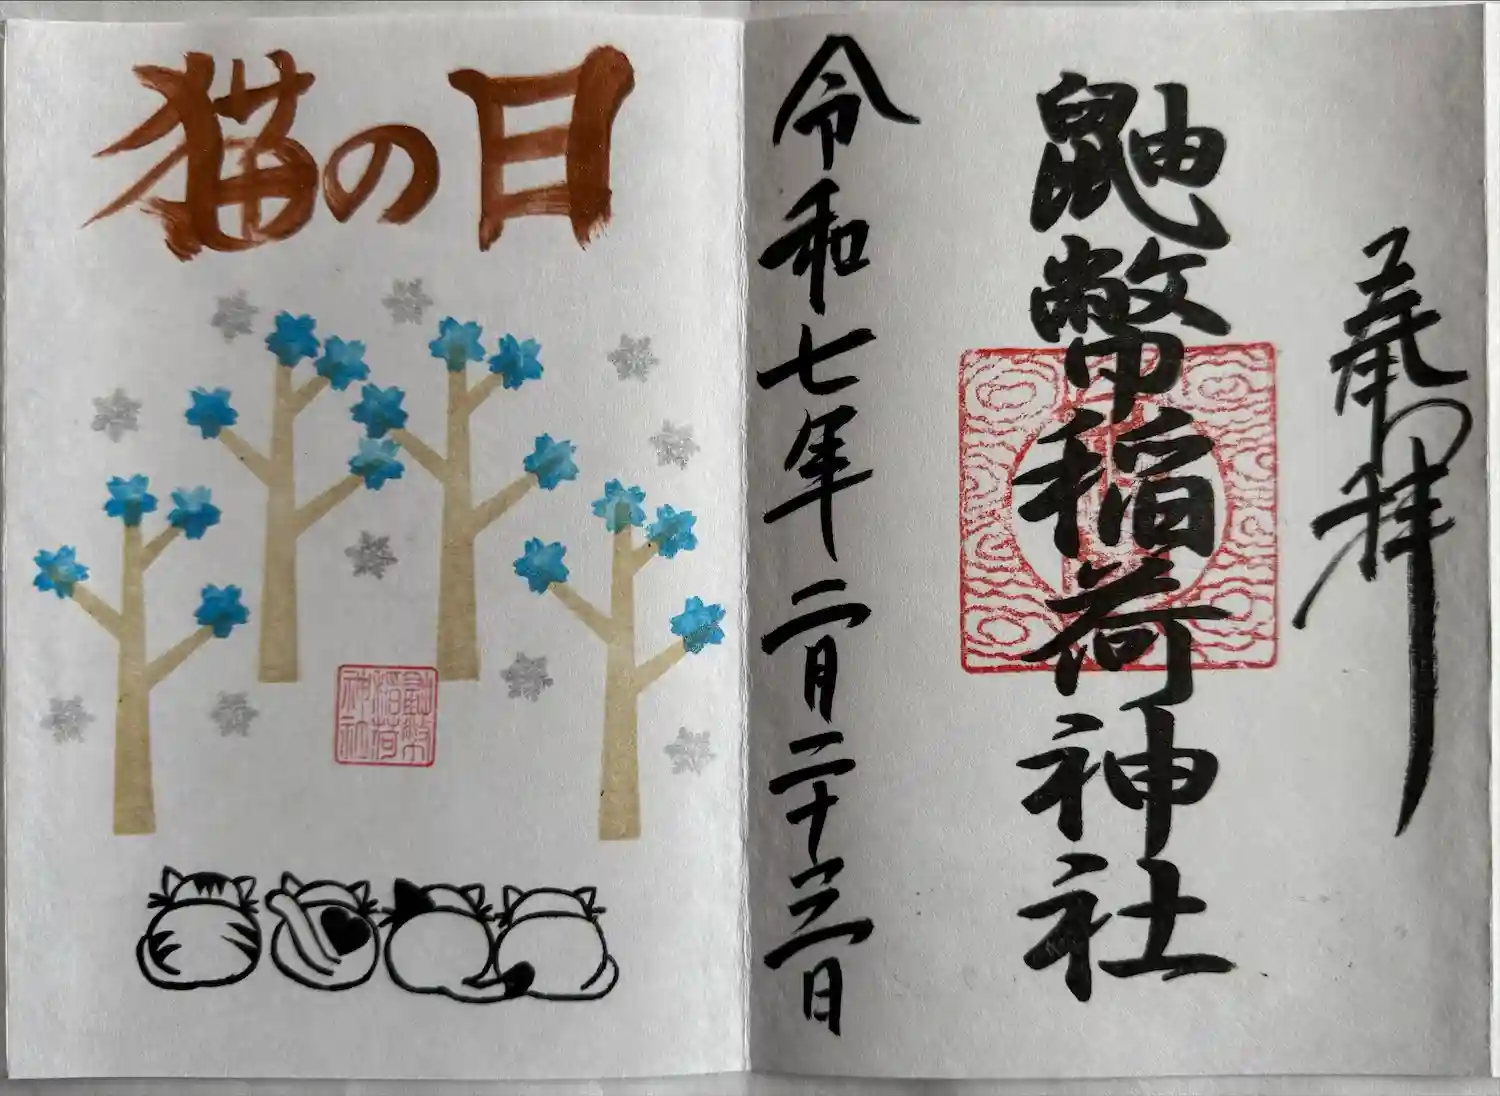 奉拝
鼬幣稲荷神社
令和七年二月二十三日
猫の日
鼬幣
稲荷
神社